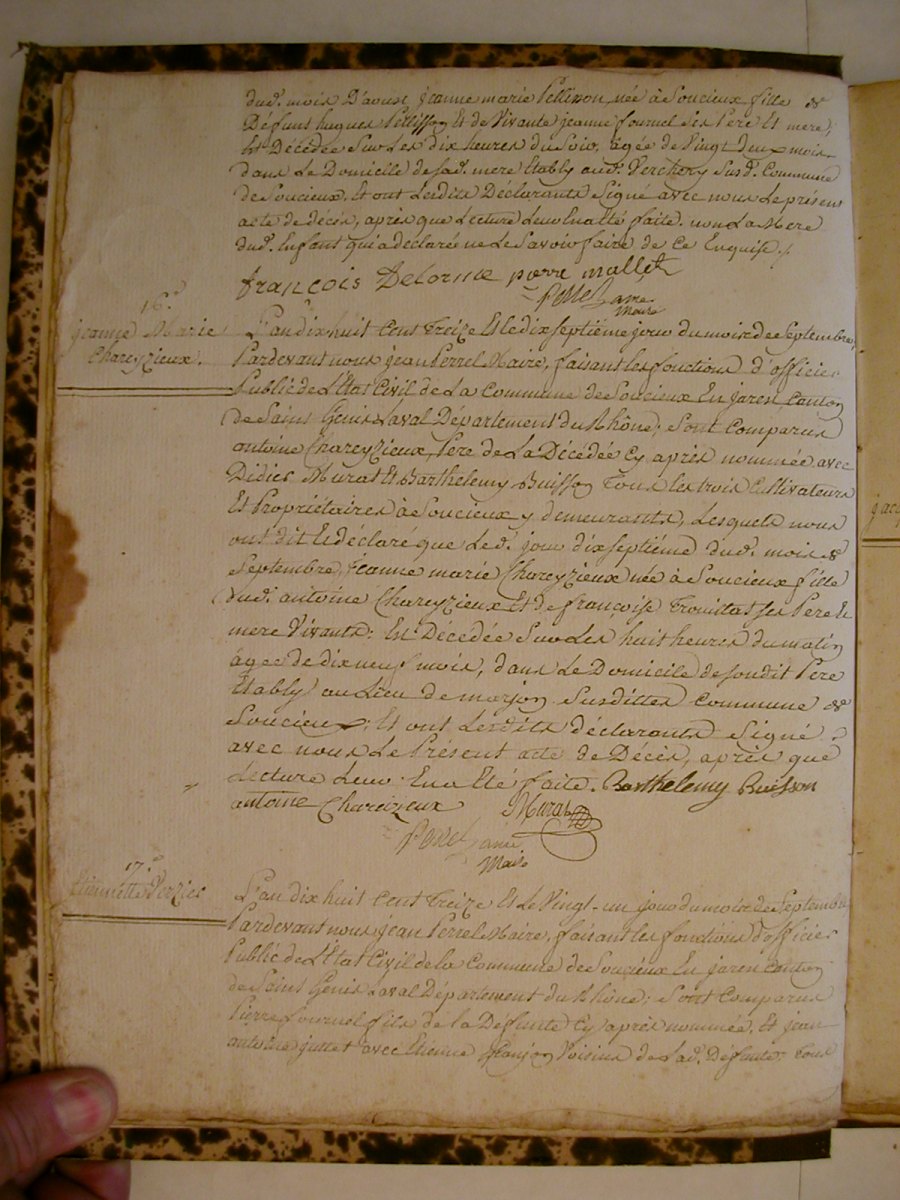 dud. mois D'aoust jeanne marie Pellisson née à Soucieux fille de
Défunt hugues Pellisson Et de Vivante jeanne fournel Ses Père Et mere;
Est Décédée Sur Les dix heures du Soir, agée de Vingt deux mois
dans Le Domicile de sad. mere Etably aud. Verchery Susd. Commune
de Soucieux. Et ont Lesdits Déclarants Signé avec nous Le présent
acte de decès, après que Lecture Leur En a Eté faite. non La Mere
dud. Enfant qui a declarée ne Le Savoir faire de Ce Enquise ./.
françois Delorme pierre mallet
Perrel
Maire
16.
jeanne Marie
Chareyzieux.
L'an dix huit Cent Treize Et Le dix Septième jour du mois de Septembre,
Pardevant nous jean Perrel Maire, faisant les fonctions d'officier
Public de L'État Civil de La Commune de Soucieux En jarest Canton
de Saint Genis Laval Département du Rhône; Sont Comparus
antoine Chareyzieux Père de La Décédée Cy après nommée avec
Didier Murat Et Barthelemy Buisson Tous les trois Cultivateurs
Et Propriétaires à Soucieux y demeurants, Lesquels nous
ont dit Et déclaré que Led. jour dix septième dud. mois de
Septembre, jeanne marie Chareyzieux née à Soucieux fille
dud. antoine Chareyzieux Et de françoise Ses Père Et
mere Vivants; Est Décédée Sur Les huit heures du matin
agee de dix neuf mois, dans Le Domicile de sondit Père
Etably au Lieu de marjon Susditte Commune de
Soucieux; Et ont Lesdits déclarants Signé
avec nous Le Présent acte de Décès, après que
Lecture Leur En a Eté faite. Barthelemy Buisson
antoine Chareizieux Murat
Perrel
Maire
17.
Etiennette Verzier
L'an dix huit Cent Treize Et Le Vingt-un jour du mois de Septembre
Pardevant nous jean Perrel Maire, faisant les fonctions d'officier
Public de L'État Civil de la Commune de Soucieux En jarest Canton
de Saint Genis Laval Département du Rhône; Sont Comparus
Pierre fournel fils de la Défunte Cy après nommée, Et jean
antoine juttet avec Etienne Voisins de Lad. Défunte, Tous